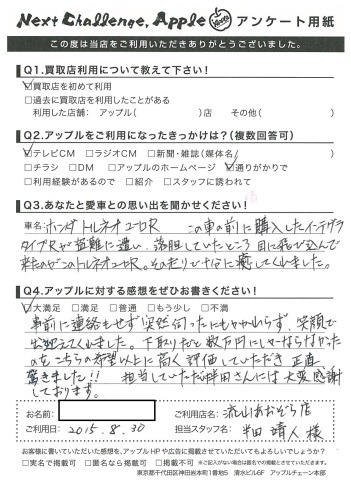 Next Challenge, Apple アンケート用紙
この度は当店をご利用いただきありがとうございました。
Q1.買取店利用について教えて下さい!
☑買取店を初めて利用
□過去に買取店を利用したことがある
利用した店舗: アップル( )店 その他( )
Q2.アップルをご利用になったきっかけは?(複数回答可)
☑テレビCM □ラジオCM □新聞・雑誌(媒体名 )
□チラシ □DM □アップルのホームページ ☑通りがかりで
□利用経験があるので □紹介 □スタッフに誘われて
Q3.あなたと愛車との思い出を聞かせください!
車名:ホンダ トルネオユーロR この車の前に購入したインテグラ
タイプRが盗難に遭い、落胆していたところ目に飛び込んで
来たのがこのトルネオユーロR。その走りで十分に癒してくれました。
Q4.アップルに対する感想をぜひお書きください!
☑大満足 □満足 □普通 □もう少し □不満
事前に連絡もせず突然伺ったにもかかわらず、笑顔で
出迎えてくれました。下取りだと数万円にしかならなかった
のをこちらの希望以上に高く評価していただき正直
驚きました!! 担当していただ半田さんには大変感謝
しております。
お名前: ご利用店名: 流山おおぞら店
ご利用日: 2015.8.30 担当スタッフ名: 半田 靖人 様
お客様に書いていただいた感想を、アップルHPや広告に掲載させていただいてもよろしいでしょうか?
□実名で掲載可 □匿名なら掲載可 □掲載不可 ※ご記入がない場合は匿名での掲載とさせていただきます。
東京都千代田区神田岩本町1番地5 清水ビル6F アップルチェーン本部